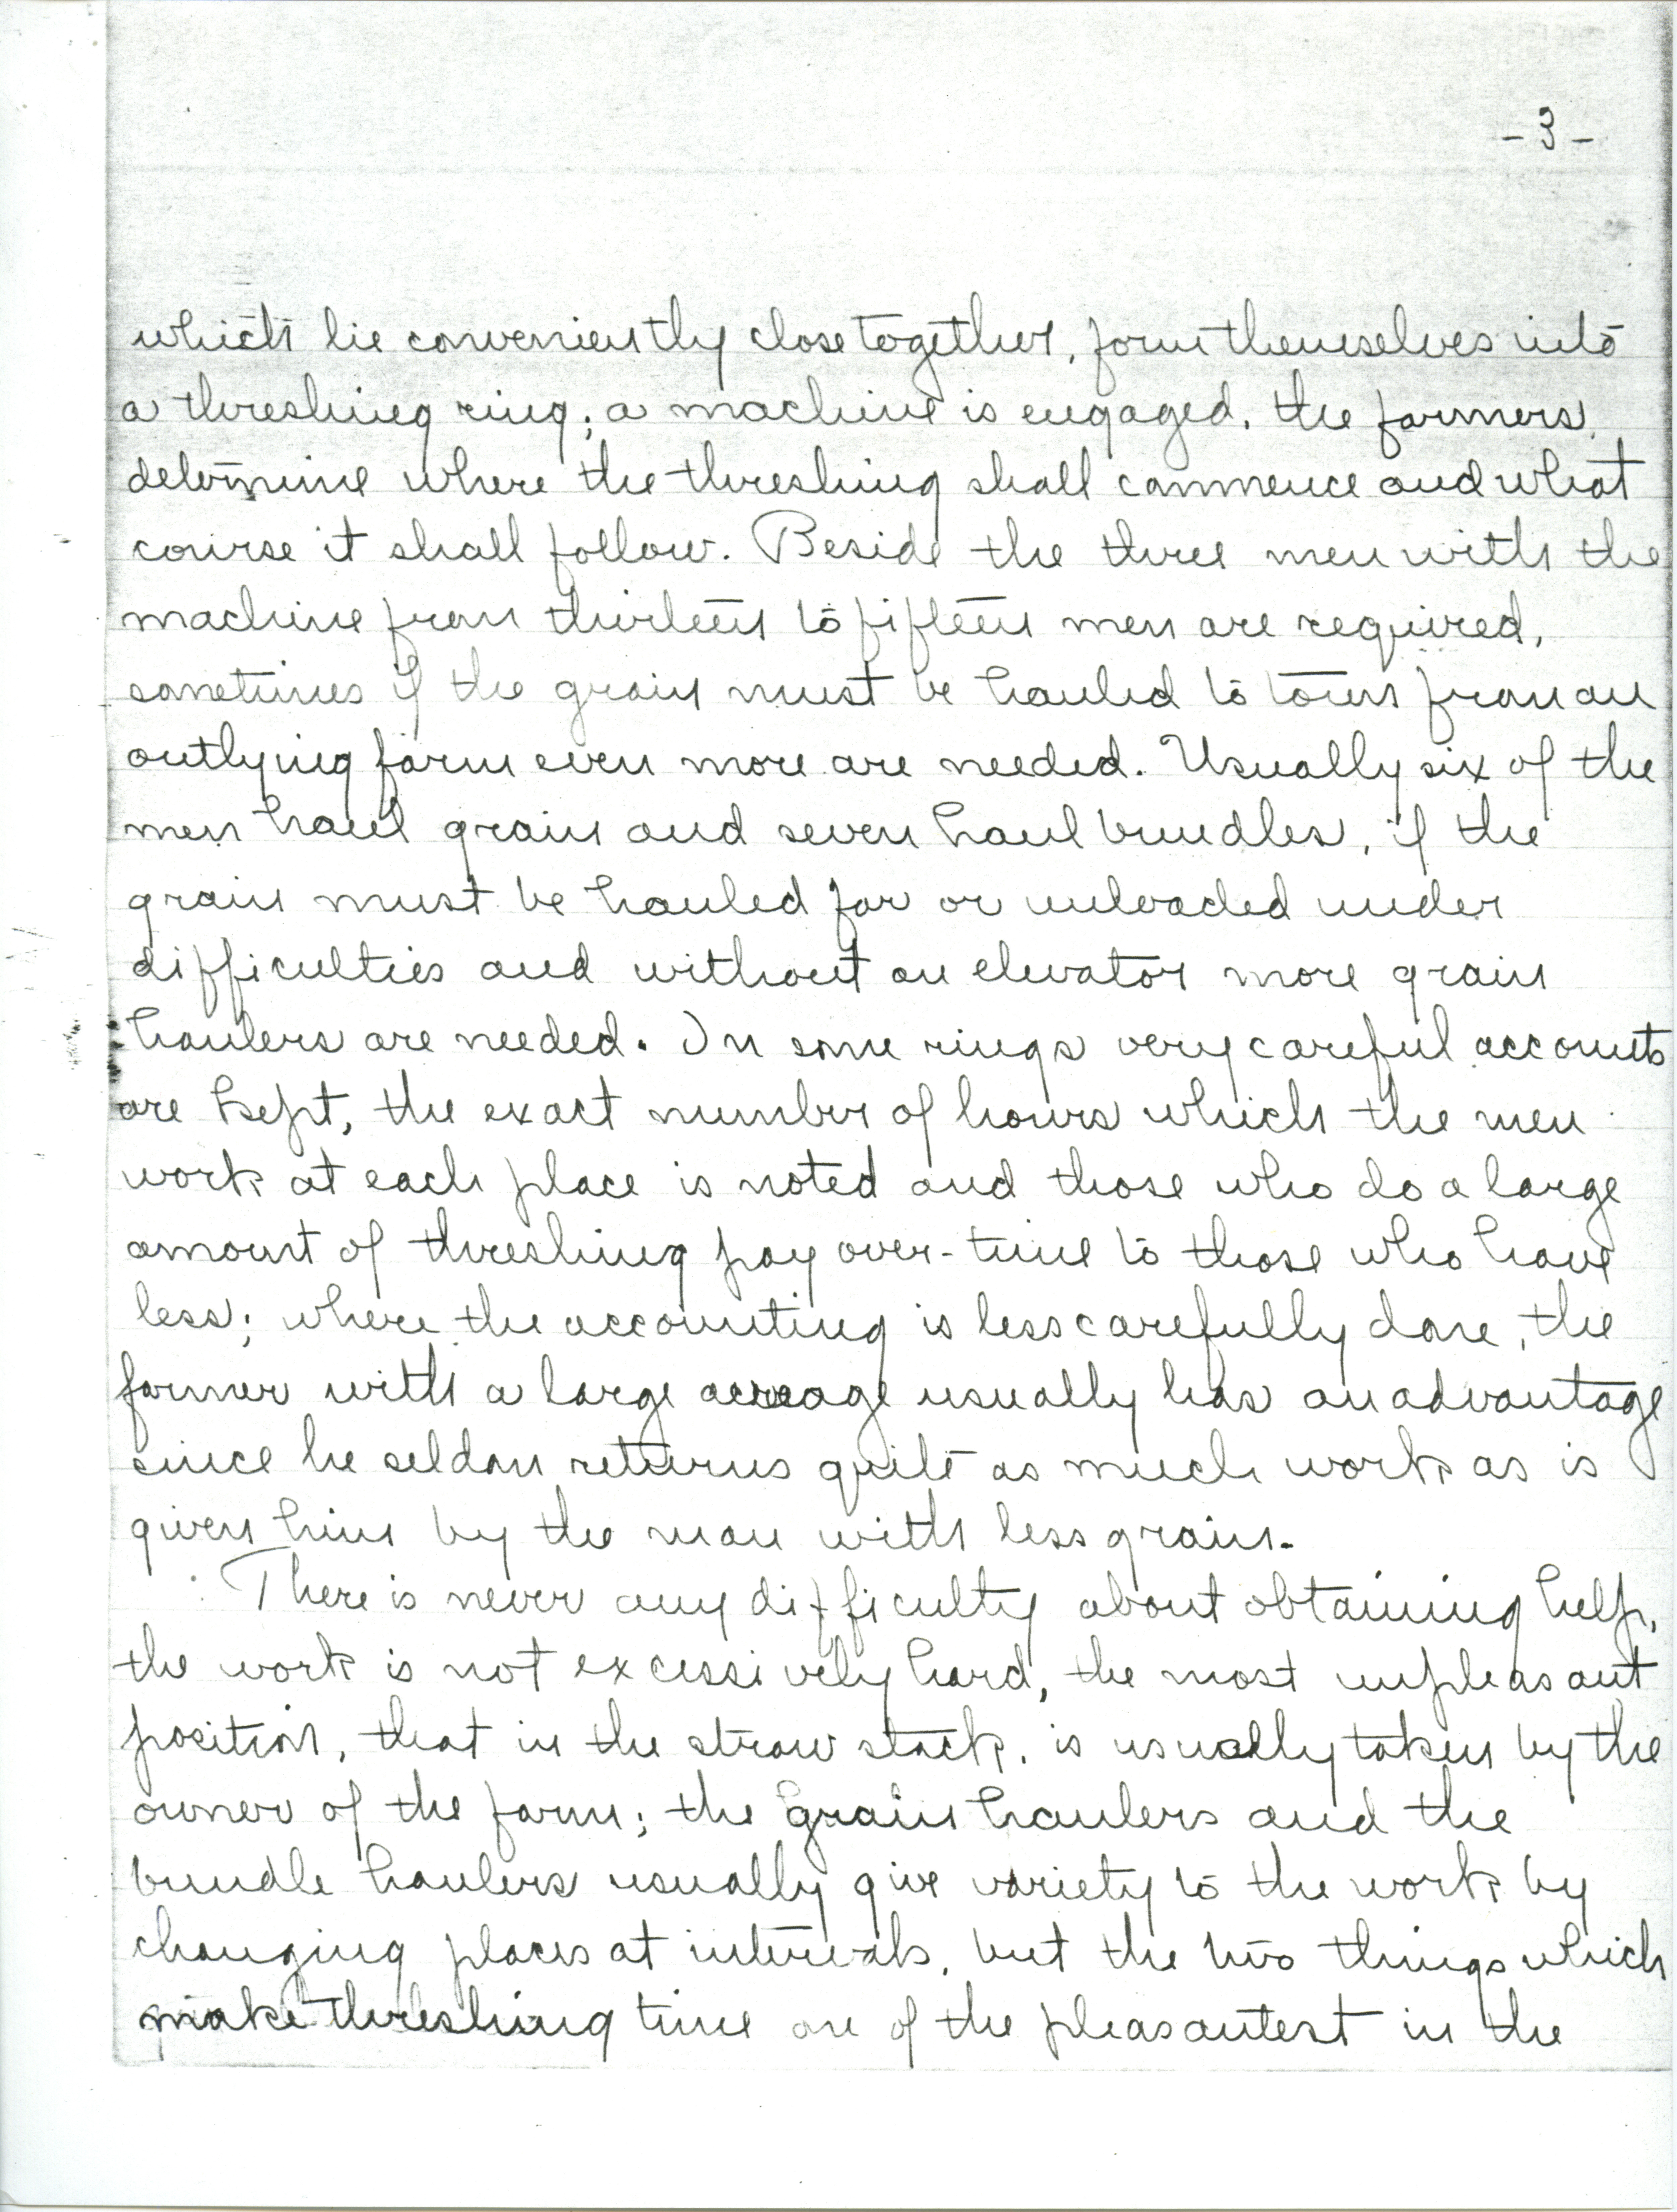 -3-
which lie conveniently close together, form themselves into
a threshing ring; a machine is engaged, the farmers
determine where the threshing shall commence and what
course it shall follow. Beside the three men with the
machine from thirteen to fifteen men are required,
sometimes if the grain must be hauled to town from an
outlying farm even more are needed. Usually six of the
men haul grain and seven haul bundles, if the
grain must be hauled far or unloaded under
difficulties and without an elevator more grain
haulers are needed. In some rings very careful accounts
are kept, the exact number of hours which the men
work at each place is noted and those who do a large
amount of threshing pay over-time to those who have
less; where the accounting is less carefully done, the
farmer with a large acreage usually has an advantage
since he seldom returns quite as much work as is
given him by the man with less grain.
There is never any difficulty about obtaining help,
the work is not excessively hard, the most unpleasant
position, that in the straw stack, is usually taken by the
owner of the farm; the grain haulers and the
bundle haulers usually give variety to the work by
changing places at intervals, but the two things which
make threshing time one of the pleasantest in the